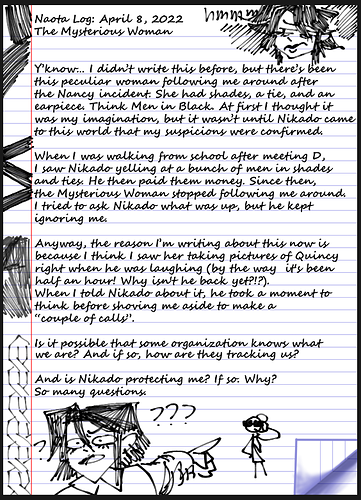 Naota Log: April 8, 2022
The Mysterious Woman
hmmm
Y'know... I didn't write this before, but there's been
this peculiar woman following me around after
the Nancy incident. She had shades, a tie, and an
earpiece. Think Men in Black. At first I thought it
was my imagination, but it wasn't until Nikado came
to this world that my suspicions were confirmed.
When I was walking from school after meeting D,
I saw Nikado yelling at a bunch of men in shades
and ties. He then paid them money. Since then,
the Mysterious Woman stopped following me around.
I tried to ask Nikado what was up, but he kept
ignoring me.
Anyway, the reason I'm writing about this now is
because I think I saw her taking pictures of Quincy
right when he was laughing (by the way it's been
half an hour! Why isn't he back yet?!?).
When I told Nikado about it, he took a moment to
think before shoving me aside to make a
"couple of calls".
Is it possible that some organization knows what
we are? And if so, how are they tracking us?
And is Nikado protecting me? If so. Why?
So many questions.
???
?